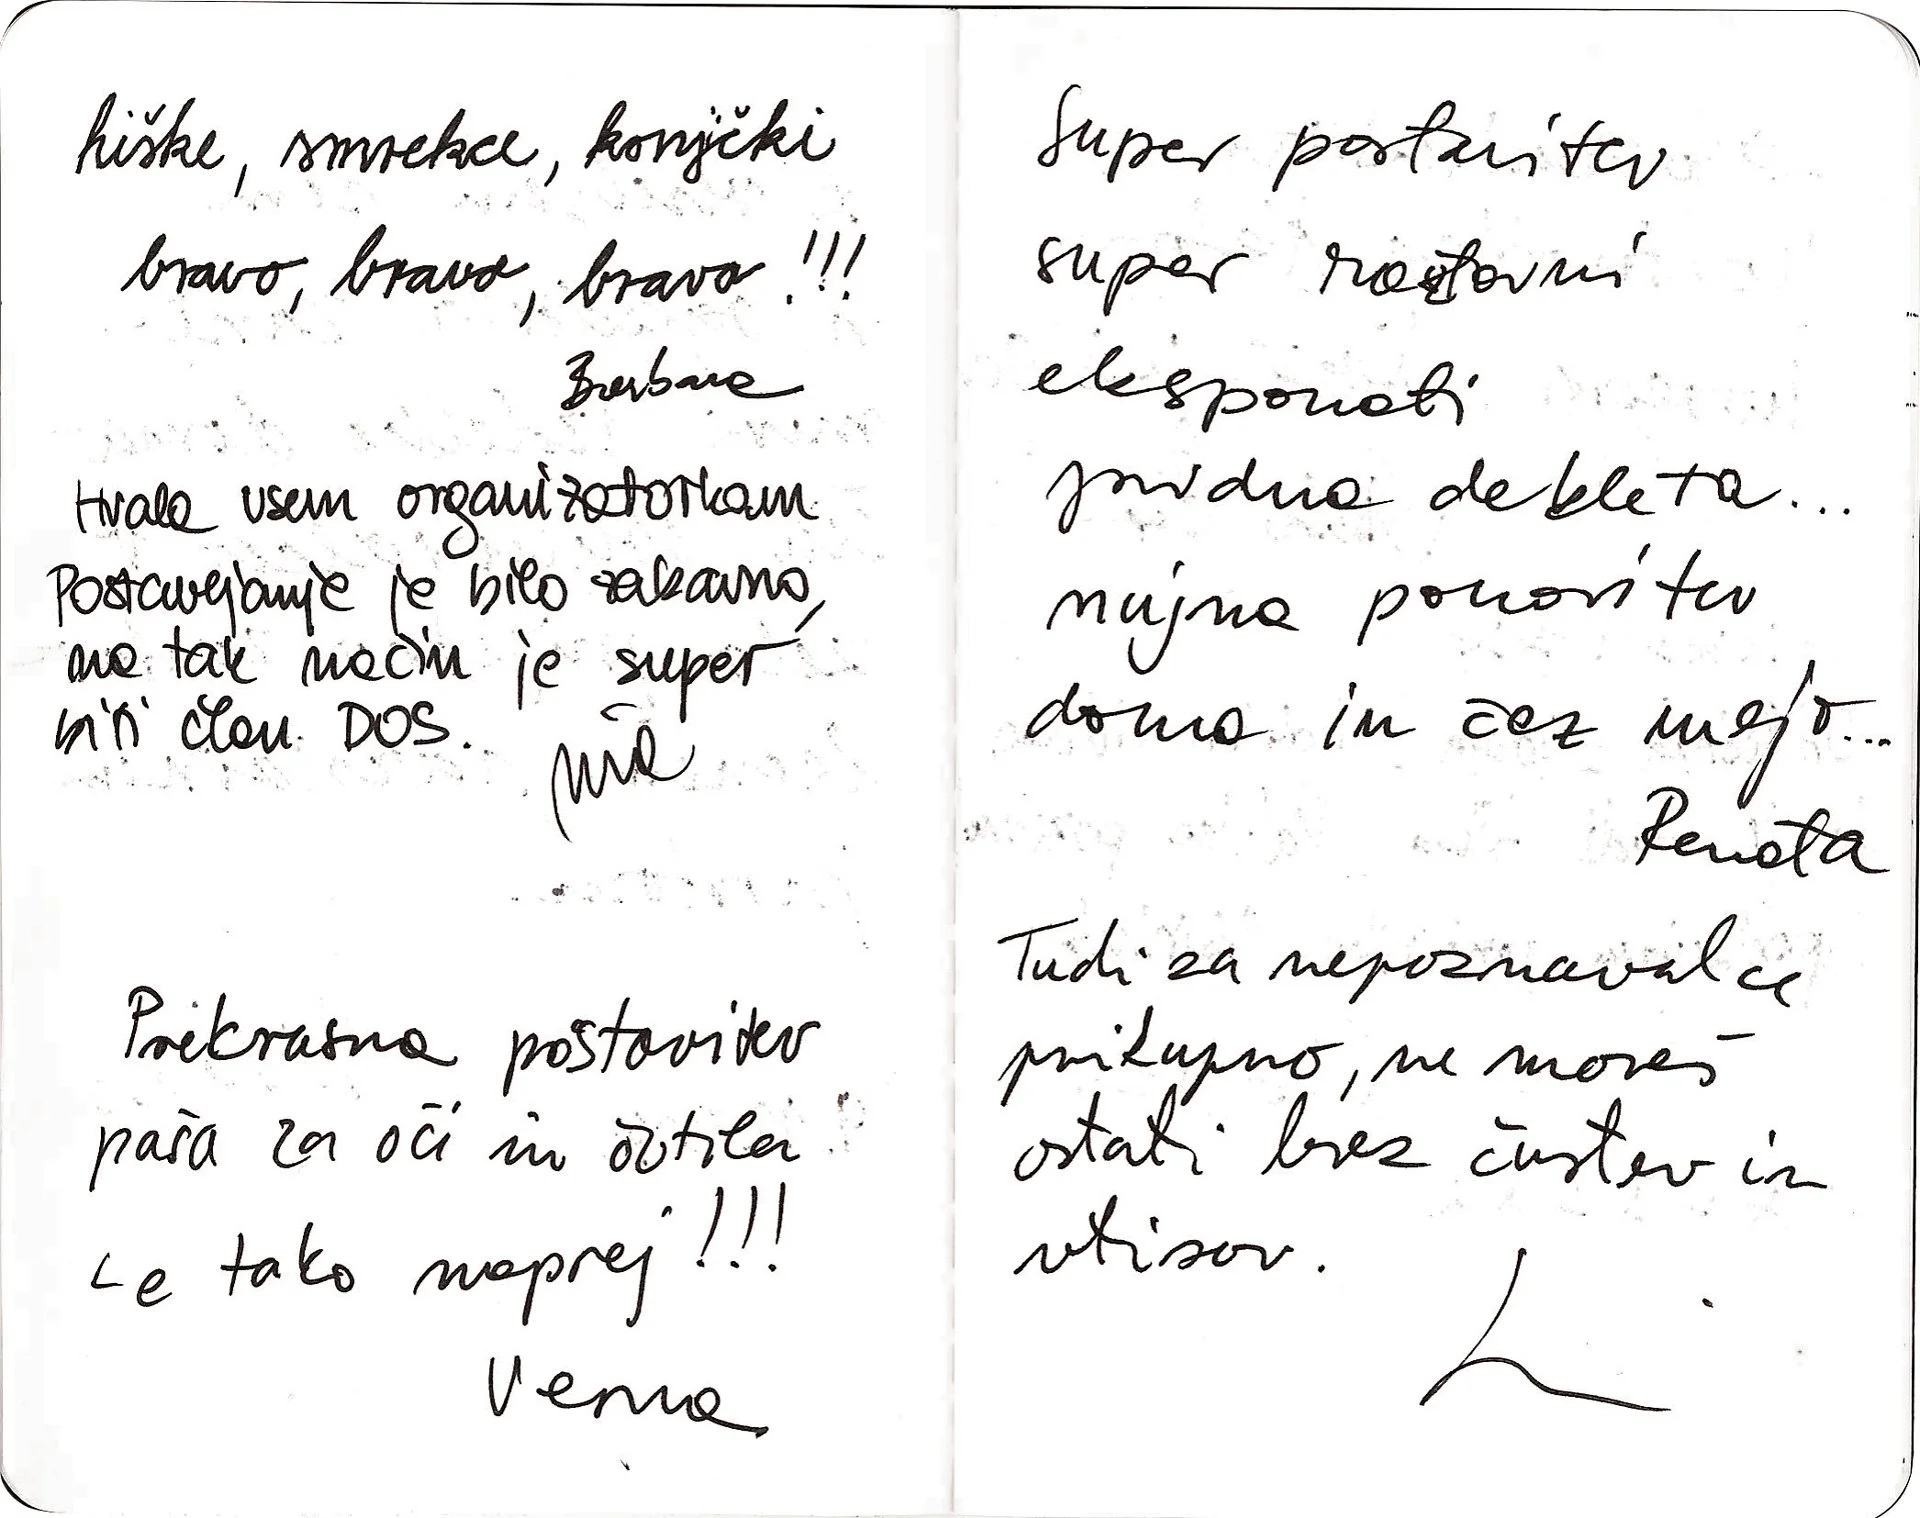 hiške, smrekce, konjički
bravo, bravo, bravo!!!
Barbara
Hvala vsem organizatorkam
Postavljanje je bilo zabavno,
na tak način je super
biti član DOS.
Prekrasna postavitev
paša za oči in čutila
Le tako naprej!!!
Vesna
Super postavitev
super razstavni
eksponati
pridna dekleta...
nujna ponovitev
doma in čez mejo...
Renata
Tudi za nepoznavalce
prikupno, ne moreš
ostati brez čustev in
vtisov.